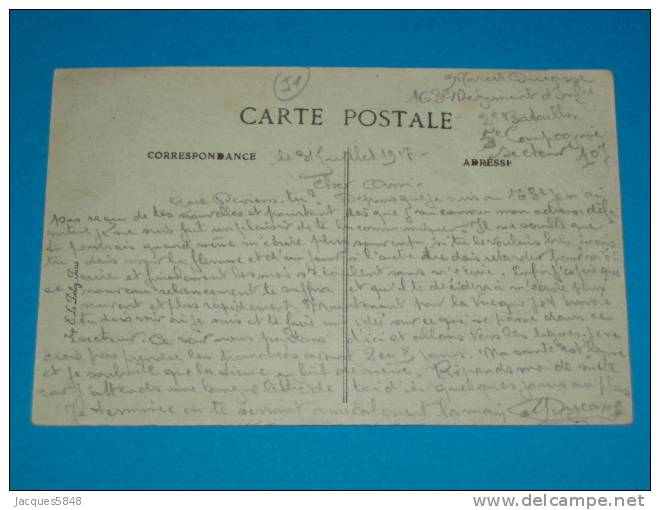 51
Marcel Ducasse
163e Régiment d'Inf
CARTE POSTALE
2e Bataillon
Compagnie
CORRESPONDANCE
le 31 Juillet 1917 -
ADRESSE
Secteur 107
Cher Ami
Que Deviens-tu? Depuis que je suis au 163e je n'ai
pas reçu de tes nouvelles et pourtant dès que j'ai connu mon adresse
je me suis fait un plaisir de te la communiquer. Il me semble que
tu pourrais quand même m'écrire plus souvent si tu le voulais bien, mais
tu dois avoir la flemme et d'un jour à l'autre tu dois retarder pour
et finalement les mois s'écoulent sans m'écrire. Enfin j'espère que
ce nouveau relancement te suffira et qu'il te décidera à m'écrire plus
souvent et plus rapidement. Maintenant par la vue que je t'envoie
tu dois voir où je suis et te faire une idée sur ce qui se passe dans ce
secteur. Ce soir nous partons d'ici et allons vers les lignes. Je ne
crois pas prendre les tranchées avant 2 ou 3 jours. Ma santé est bonne
et je souhaite que la tienne en soit de même. Réponds-moi de suite
car j'attends une longue lettre de toi d'ici quelques jours au plus
Je termine en te serrant amicalement la main
Imp. E. Le Deley, Paris
Jacques5848
delcampe.net